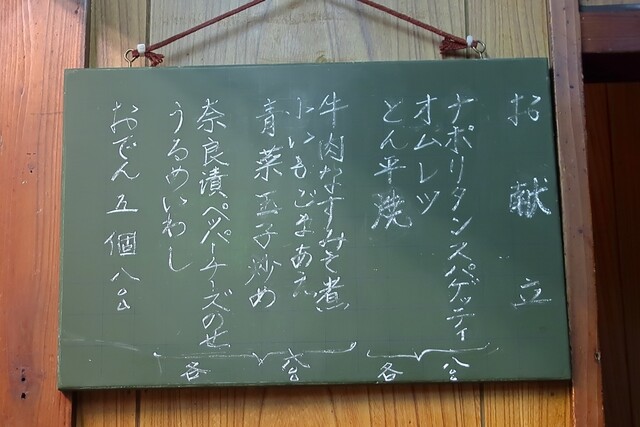 お献立
ナポリタンスパゲッティ
オムレツ
とん平焼
各 八〇〇
牛肉なすみそ煮
小いもごまあえ
青菜玉子炒め
奈良漬ペッパーチーズのせ
うるめいわし
各 六〇〇
おでん 五個 八〇〇